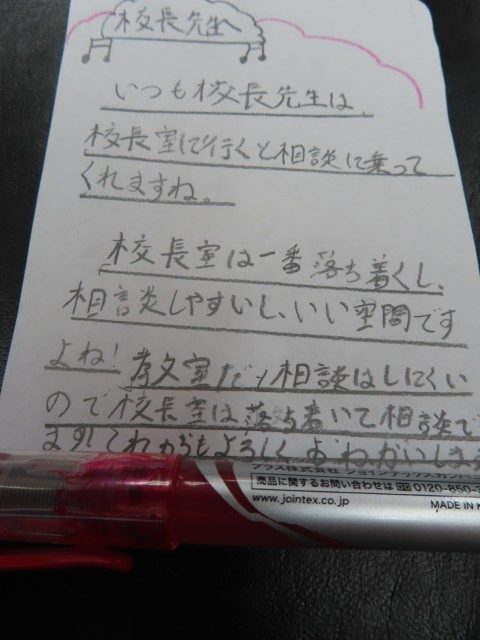 校長先生へ
いつも校長先生は、
校長室に行くと相談に乗って
くれますね。
校長室は一番落ち着くし、
相談しやすいし、いい空間です
よね!教室だと相談はしにくい
ので校長室は落ち着いて相談で
ます!これからもよろしくおねがいしま
プラス株式会社 ジョインテックスカンパ
商品に関するお問い合わせは 0120-860-
www.jointex.co.jp MADE IN